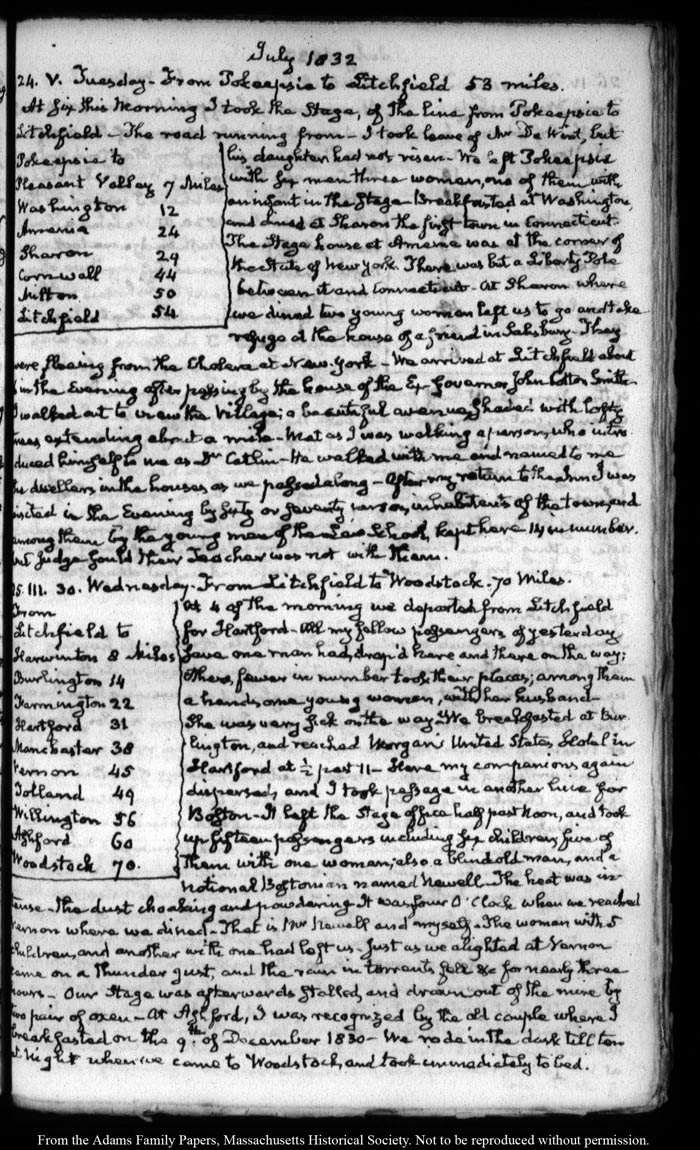 July 1832
24. V. Tuesday – From Pokeepsie to Litchfield 53 miles.
At six this Morning I took the Stage, of the line from Pokeepsie to
Litchfield – The road running from – I took leave of Mr De Wint, but
Pokeepsie to
Pleasant Valley 7 Miles
Washington 12
Amenia 24
Sharon 29
Cornwall 44
Milton 50
Litchfield 54
his daughter had not risen – We left Pokeepsie
with six men three women, one of them with
an infant in the Stage – Breakfasted at Washington,
and dined at Sharon the first town in Connecticut.
The Stage house at Amenia was at the corner of
the State of New York. There was but a Liberty Pole
between it and Connecticut – At Sharon where
we dined two young women left us to go and take
refuge at the house of a friend in Salisbury – They
were fleeing from the Cholera at New-York – We arrived at Litchfield about
in the Evening after passing by the house of the Ex Governor John Cotton Smith
I walked out to view the Village; a beautiful avenue, shaded with lofty
trees extending about a mile – Met as I was walking a person, who intro
duced himself to me as Dr Catlin – He walked with me and named to me
the dwellers in the houses as we passed along – After my return to the Inn I was
visited in the Evening by sixty or seventy inhabitants of the town, and
among them by the young men of the Law School, kept here 14 in number.
but Judge Gould their Teacher was not with them.
25. III. 30. Wednesday. From Litchfield to Woodstock. 70 Miles.
From
Litchfield to
Harwinton 8 Miles
Burlington 14
Farmington 22
Hartford 31
Manchester 38
Vernon 45
Tolland 49
Willington 56
Ashford 60
Woodstock 70.
At 4 of the morning we departed from Litchfield
for Hartford – All my fellow passengers of yesterday
save one man had, drop'd here and there on the way;
others, fewer in number took their places; among them
a handsome young woman, with her husband –
She was very sick on the way – We breakfasted at Bur
lington, and reached Morgan's United States Hotel in
Hartford at ½ past 11 – Here my companions again
dispersed, and I took passage in another line for
Boston – It left the Stage office half past Noon, and took
up fifteen passengers including six children, five of
them with one woman; also a blind old man, and a
notional Bostonian named Newell – The heat was in
tense – The dust choaking and powdering – It was four O'Clock when we reached
Vernon where we dined – That is Mr Newell and myself – The woman with 5
children, and another with one had left us – Just as we alighted at Vernon
came on a thunder gust, and the rain in torrents fell &c for nearly three
hours – Our Stage was afterwards stalled, and drawn out of the mire by
two pair of oxen – At Ashford, I was recognized by the old couple where I
breakfasted on the 9th of December 1830 – We rode in the dark till ten
at Night when we came to Woodstock, and took immediately to bed.
From the Adams Family Papers, Massachusetts Historical Society. Not to be reproduced without permission.